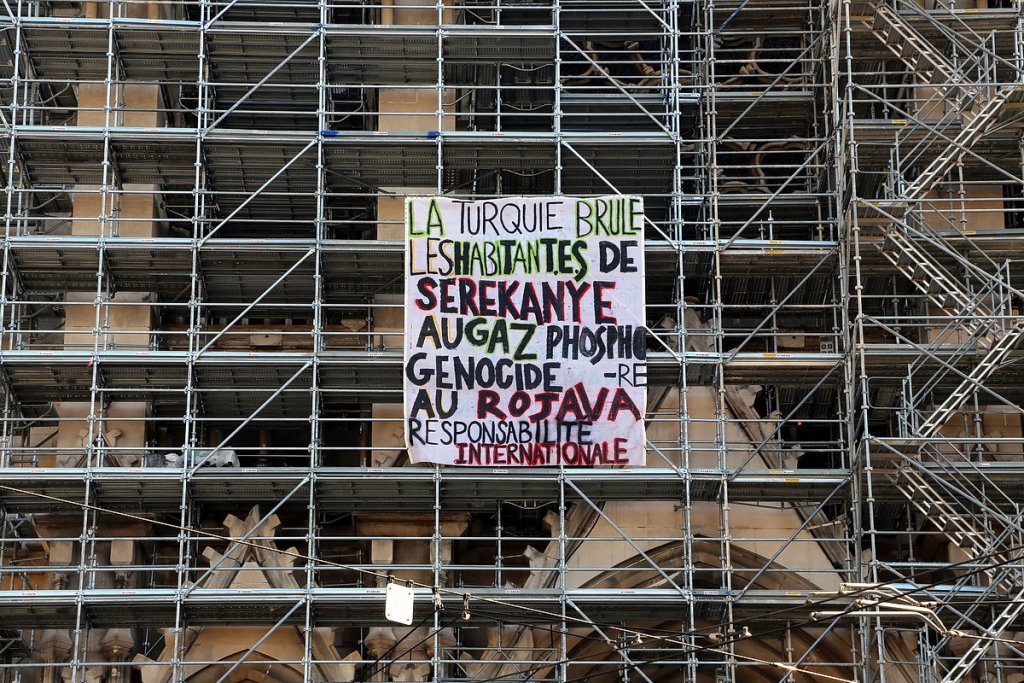 LA TURQUIE BRULE
LES HABITANT.ES DE
SEREKANYE
AU GAZ PHOSPHO
GENOCIDE -RE
AU ROJAVA
RESPONSABILITE
INTERNATIONALE